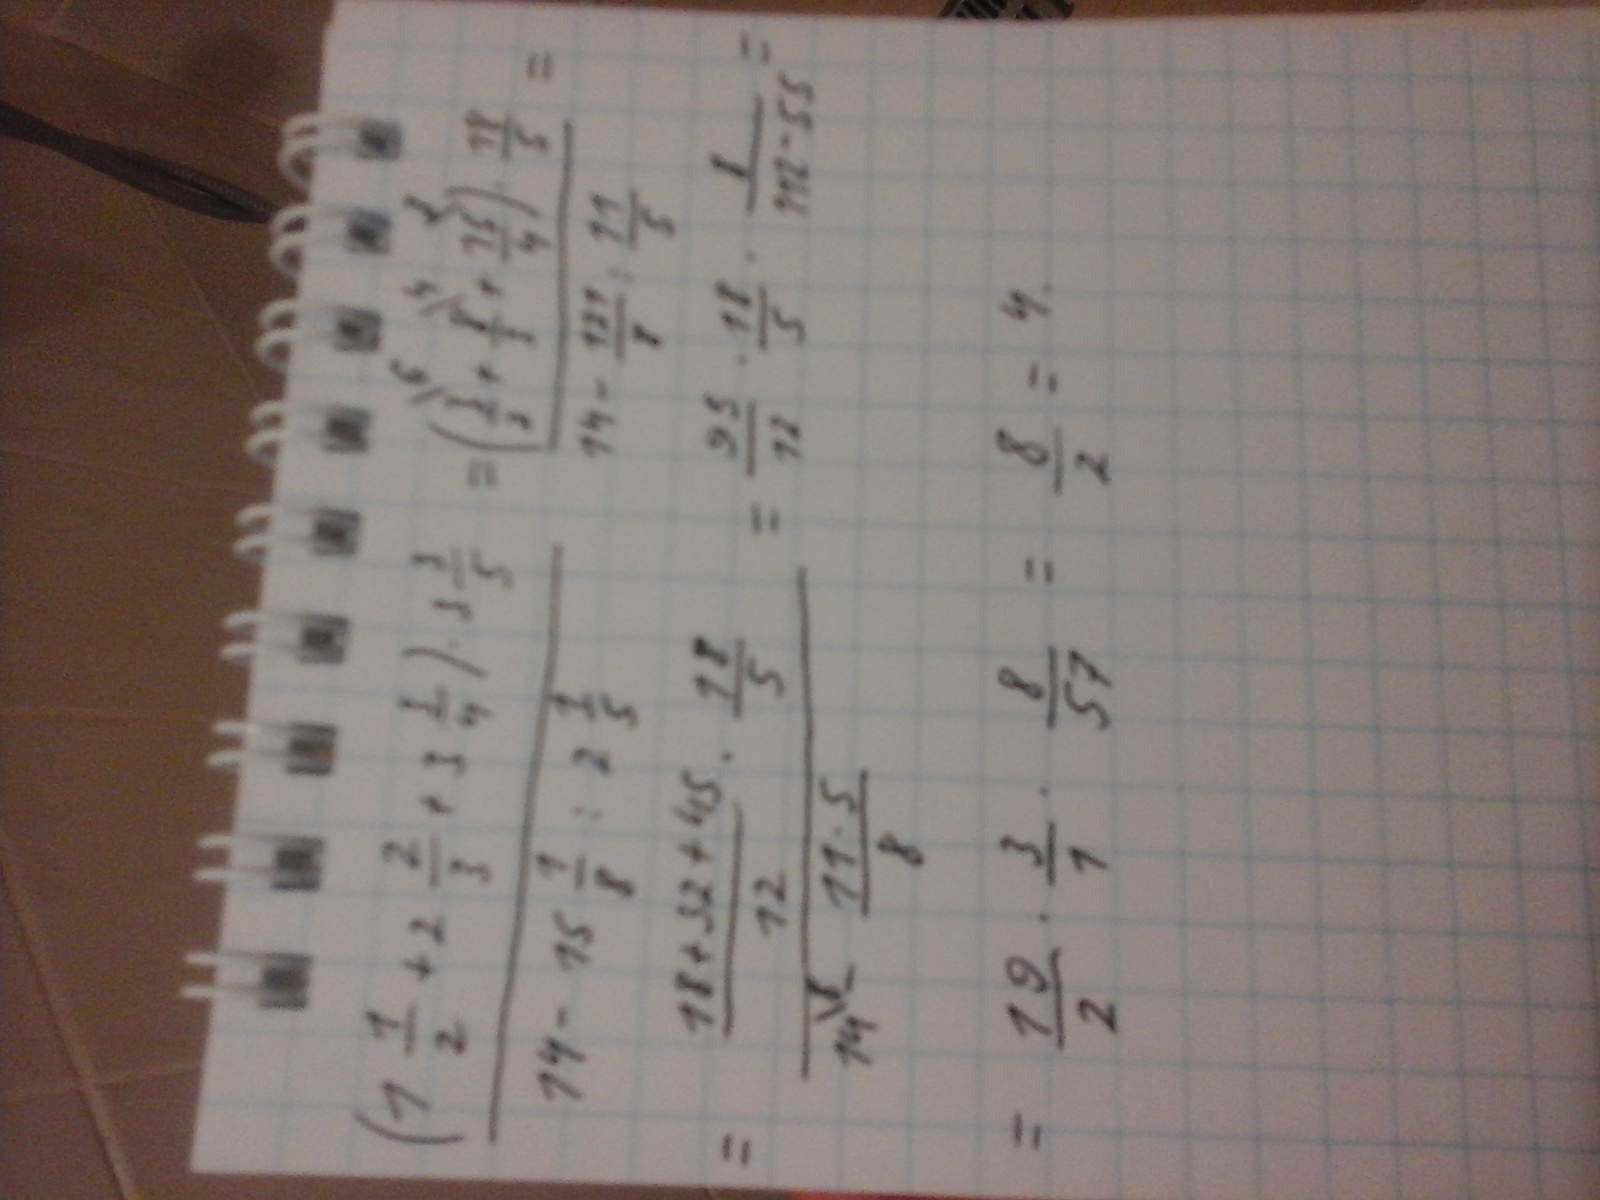 (1 1/2 + 2 2/3 + 3 3/4) · 3 3/5 / 14 - 15 1/8 : 2 1/5 = (3/2 + 8/3 + 15/4) · 18/5 / 14 - 121/8 : 11/5 =
= 18+32+45/12 · 18/5 / 14 - 11·5/8 = 95/12 · 18/5 · 8/112-55 =
= 19/2 · 3/1 · 8/57 = 8/2 = 4.